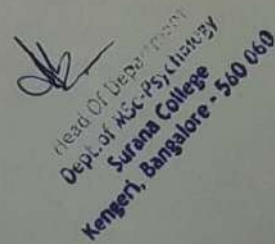 Head Of Department
Dept. of MSc-Psychology
Surana College
Kengeri, Bangalore - 560 060